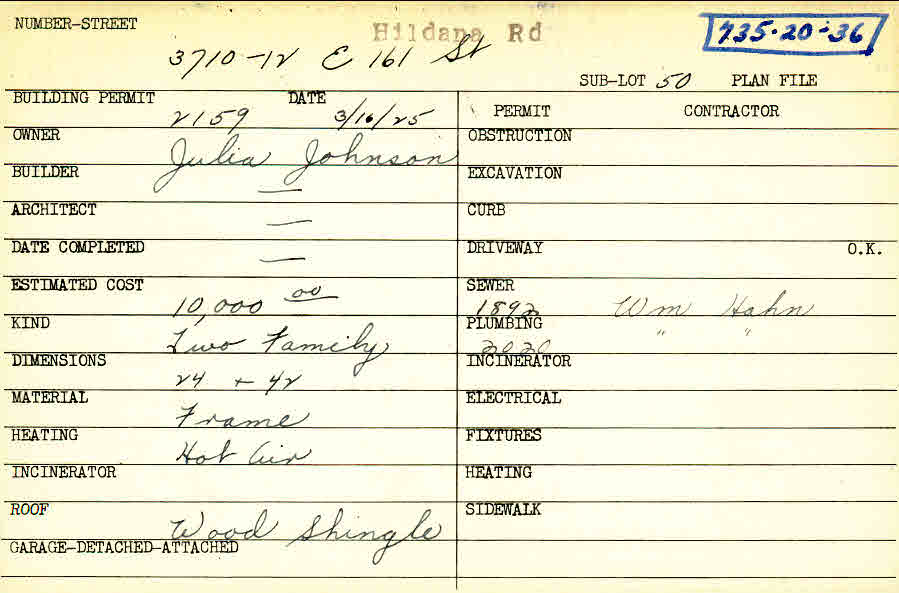 NUMBER-STREET Hildana Rd 735-20-36
3710-12 E 161 St
SUB-LOT 50 PLAN FILE
BUILDING PERMIT DATE PERMIT CONTRACTOR
2159 3/16/25
OWNER OBSTRUCTION
Julia Johnson
BUILDER — EXCAVATION
ARCHITECT — CURB
DATE COMPLETED — DRIVEWAY O.K.
ESTIMATED COST SEWER
10,000 00 1892 Wm Hahn
KIND PLUMBING
Two Family 2020 " "
DIMENSIONS INCINERATOR
24 + 42
MATERIAL ELECTRICAL
Frame
HEATING FIXTURES
Hot Air
INCINERATOR HEATING
ROOF SIDEWALK
Wood Shingle
GARAGE-DETACHED-ATTACHED